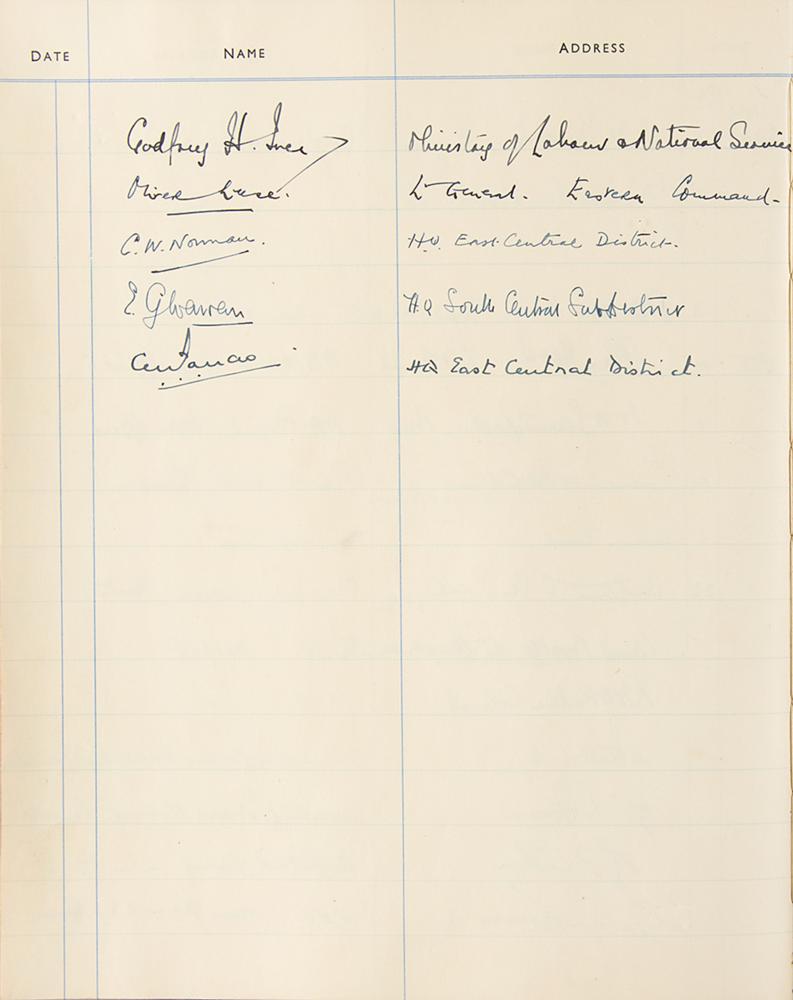 DATE NAME ADDRESS
Godfrey H. Ince Ministry of Labour & National Service
Oliver Leese. Lt General. Eastern Command-
C. W. Norman. H.Q. East Central District.
E. HQ South Central Sub District
HQ East Central District.